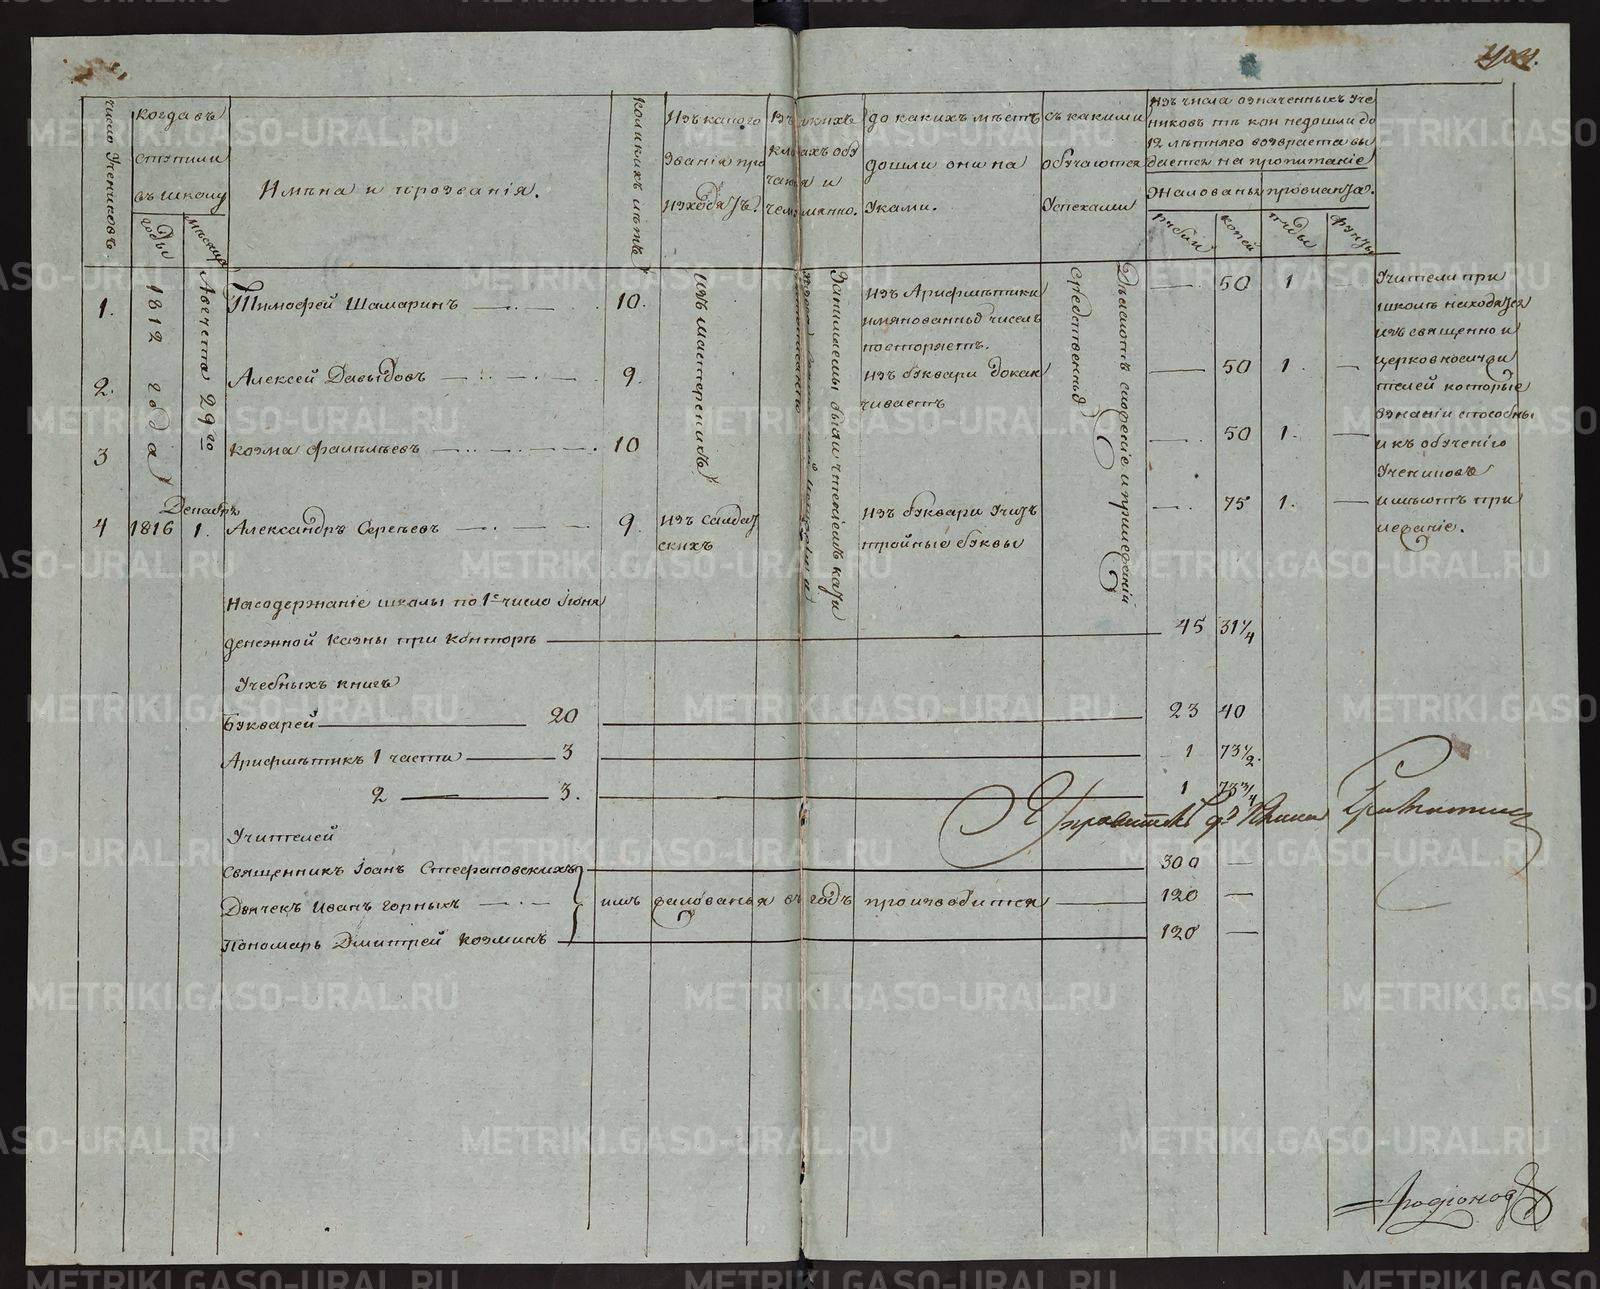 число Учениковъ
когда въ
ступили
въ школу
годы
месяцы
Имѣна и прозванія.
Коликихъ лѣтъ
Изъ какого
званія про
изходятъ.
Въ какихъ
класахъ обу
чаются и
чем именно.
до какихъ мѣстъ
дошли они на
Уками.
съ какими
обучаются
Успехами
изъ числа означенныхъ Уче
никовъ тѣ кои недошли до
12 лѣтняго возвраста вы
дается на пропитаніе
Жалованья провианта.
рубли
копей
пуды
фунты
1.
1812 года
Августа 29го
Тимофей Шамаринъ
10.
Изъ мастерскихъ
Занимаемы были чтеніемъ кати
изъ Арифметики
имянованныя числъ
повторяетъ.
средственныя
Дѣлаютъ скорѣніе и прилежаніи
50 1
Учители при
школѣ находятся
изъ священно и
церковнослужи
телей которые
взнаніи способны
и къ обученію
Учениковъ
имѣютъ при
лежаніе.
2. Алексей Давыдовъ 9. изъ букваря докан
чиваетъ
50 1.
3 Козма Фалилѣевъ 10 50 1.
4 1816 Декабря 1. Александръ Сергѣевъ 9. изъ салдат
скихъ
изъ букваря Учитъ
тройные буквы
75 1.
На содержаніе школы по 1е число Іюня
денежной казны при конторѣ 45 31 1/4
Учебныхъ книгъ
Букварей 20 23 40
Арифметикъ 1 части 3 1 73 1/2.
2 3. 1 73 3/4
Управитель
Учителей
Священникъ Іоанъ Стефановскихъ 300
Дьячекъ Иванъ Горныхъ имъ жалованья въ годъ производится 120
Пономарь Дмитрей Козминъ 120
Родіонов
METRIKI.GASO-URAL.RU